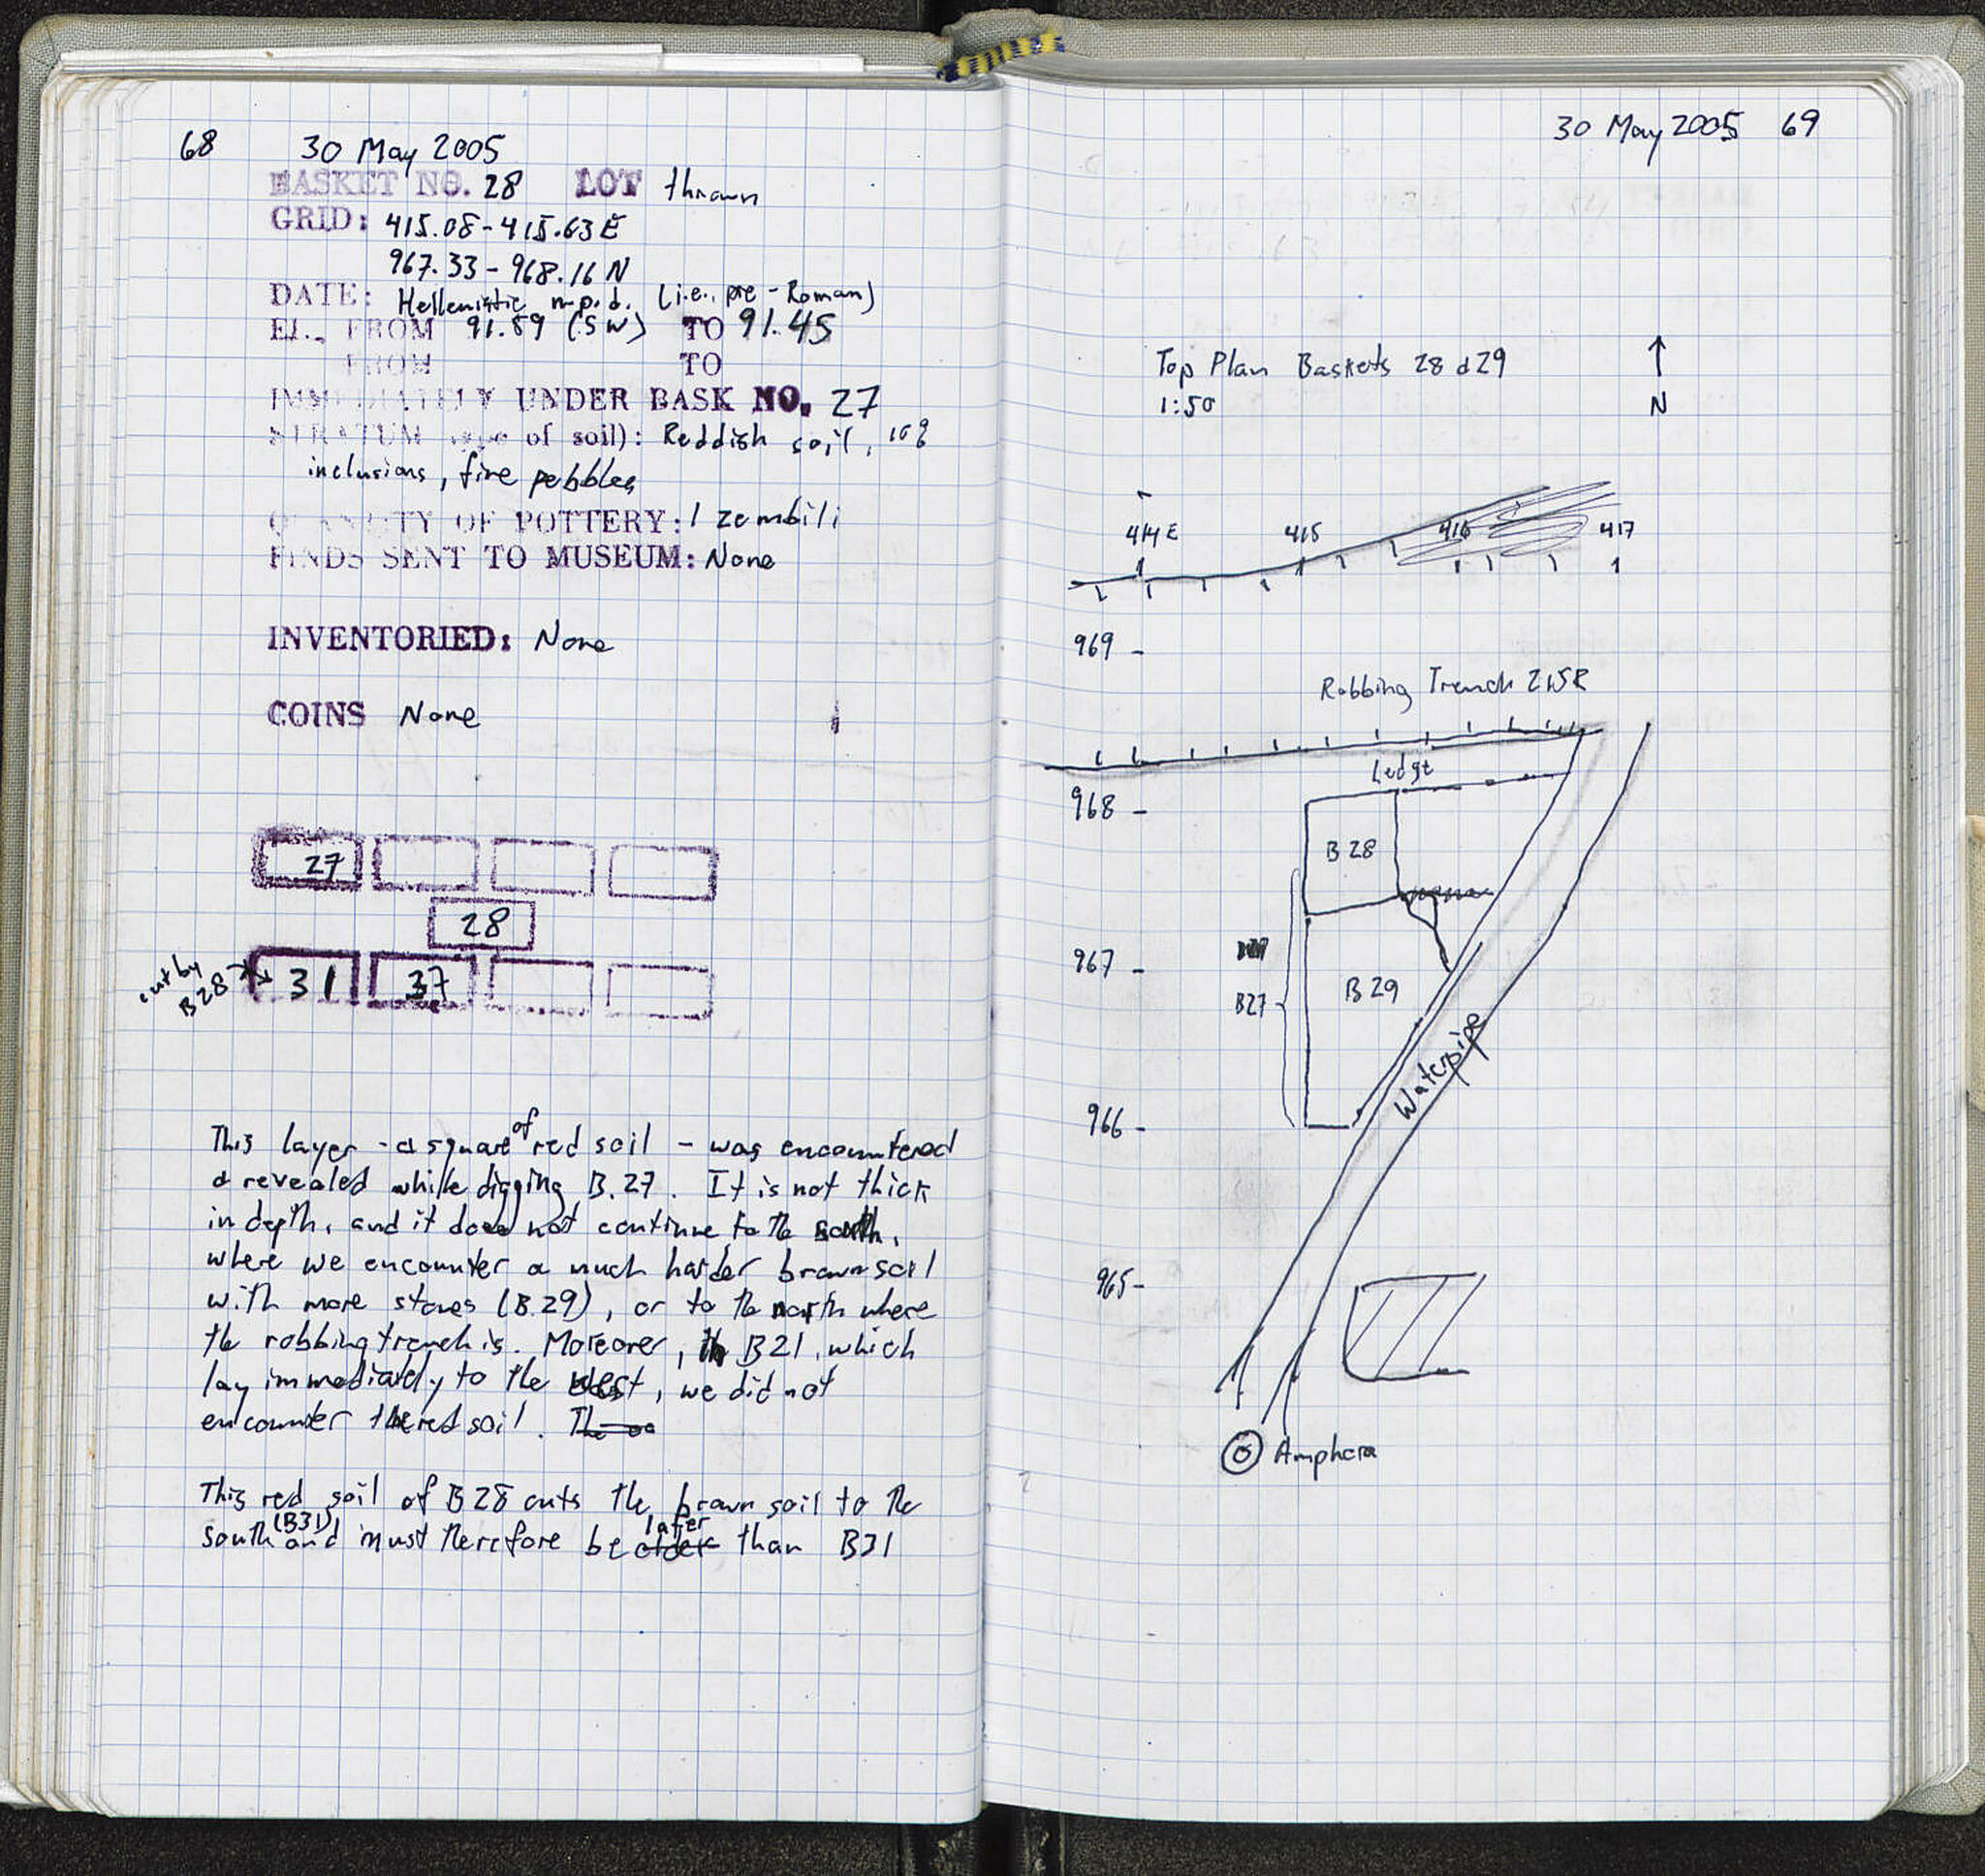 68 30 May 2005
BASKET NO. 28 LOT thrown
GRID: 415.08-415.63E
967.33-968.16 N
DATE: Hellenistic m.p.d. (i.e., pre-Roman)
EL. FROM 91.59 (SW) TO 91.45
FROM TO
IMMEDIATELY UNDER BASK NO. 27
STRATUM (type of soil): Reddish soil, 10%
inclusions, fine pebbles
QUANTITY OF POTTERY: 1 zembili
FINDS SENT TO MUSEUM: None
INVENTORIED: None
COINS None
27
28
cut by
B28
31 37
This layer - a square of red soil - was encountered
& revealed while digging B.27. It is not thick
in depth, and it does not continue to the south,
where we encounter a much harder brown soil
with more stones (B.29), or to the north where
the robbing trench is. Moreover, in B21, which
lay immediately to the west, we did not
encounter the red soil. The
This red soil of B28 cuts the brown soil to the
south (B31), and must therefore be older later than B31
30 May 2005 69
Top Plan Baskets 28 & 29
1:50
N
414E 415 416 417
969
Robbing Trench
Ledge
968
B 28
967
B 29
B27
Waterpipe
966
965
Amphora